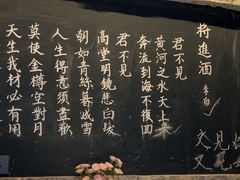 將進酒 李白
君不見
黃河之水天上來
奔流到海不復回
君不見
高堂明鏡悲白髮
朝如青絲暮成雪
人生得意須盡歡
莫使金樽空對月
天生我材必有用
又見